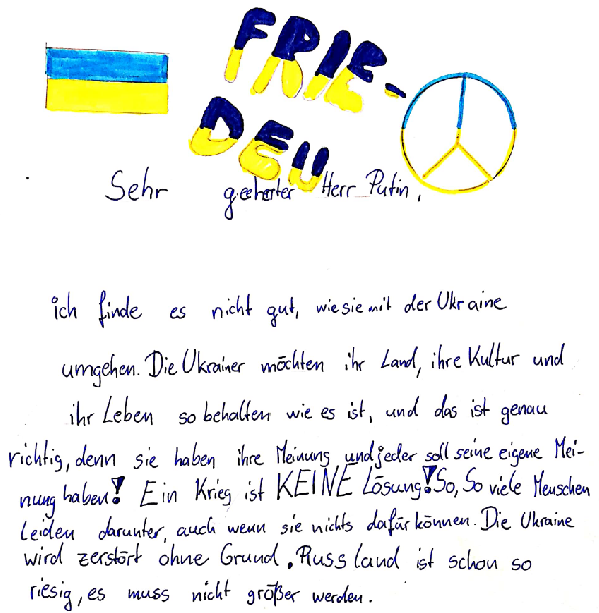 FRIE-
DEN
Sehr geeherter Herr Putin,
ich finde es nicht gut, wie sie mit der Ukraine
umgehen. Die Ukrainer möchten ihr Land, ihre Kultur und
ihr Leben so behalten wie es ist, und das ist genau
richtig, denn sie haben ihre Meinung und jeder soll seine eigene Mei-
nung haben! Ein Krieg ist KEINE Lösung! So, So viele Menschen
leiden darunter, auch wenn sie nichts dafür können. Die Ukraine
wird zerstört ohne Grund. Russland ist schon so
riesig, es muss nicht größer werden.